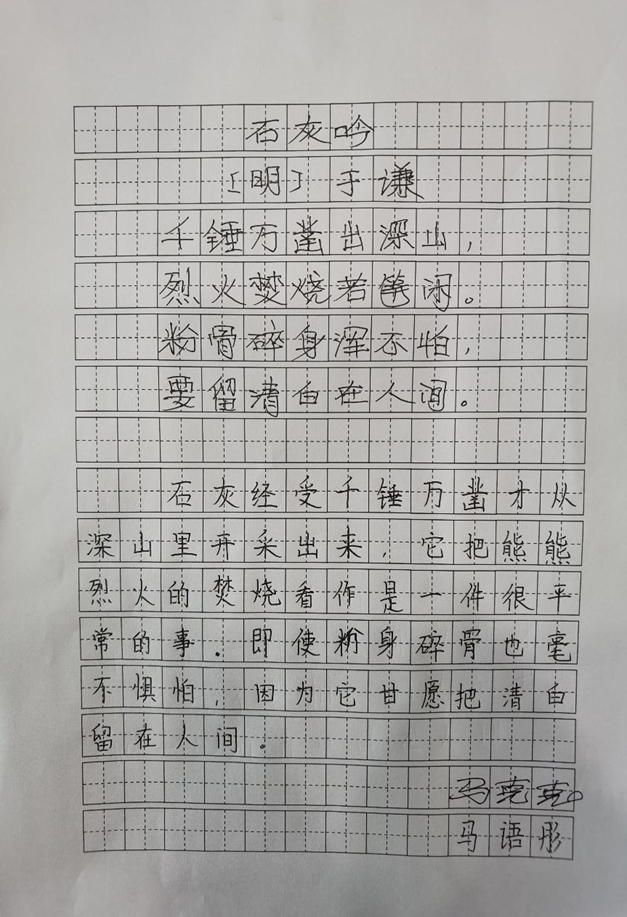 石灰吟
[明] 于谦
千锤万凿出深山,
烈火焚烧若等闲。
粉骨碎身浑不怕,
要留清白在人间。
石灰经受千锤万凿才从
深山里开采出来,它把熊熊
烈火的焚烧看作是一件很平
常的事.即使粉身碎骨也毫
不惧怕,因为它甘愿把清白
留在人间。
马克克
马语彤